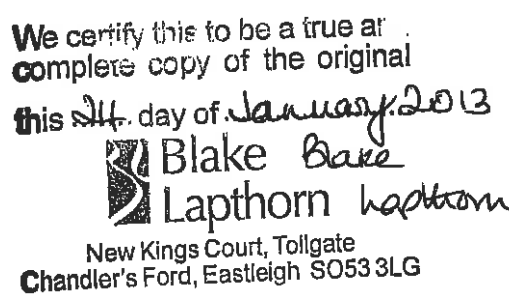 We certify this to be a true ar
complete copy of the original
this 24. day of January. 2013
Blake Blake
Lapthorn Lapthorn
New Kings Court, Tollgate
Chandler's Ford, Eastleigh SO53 3LG